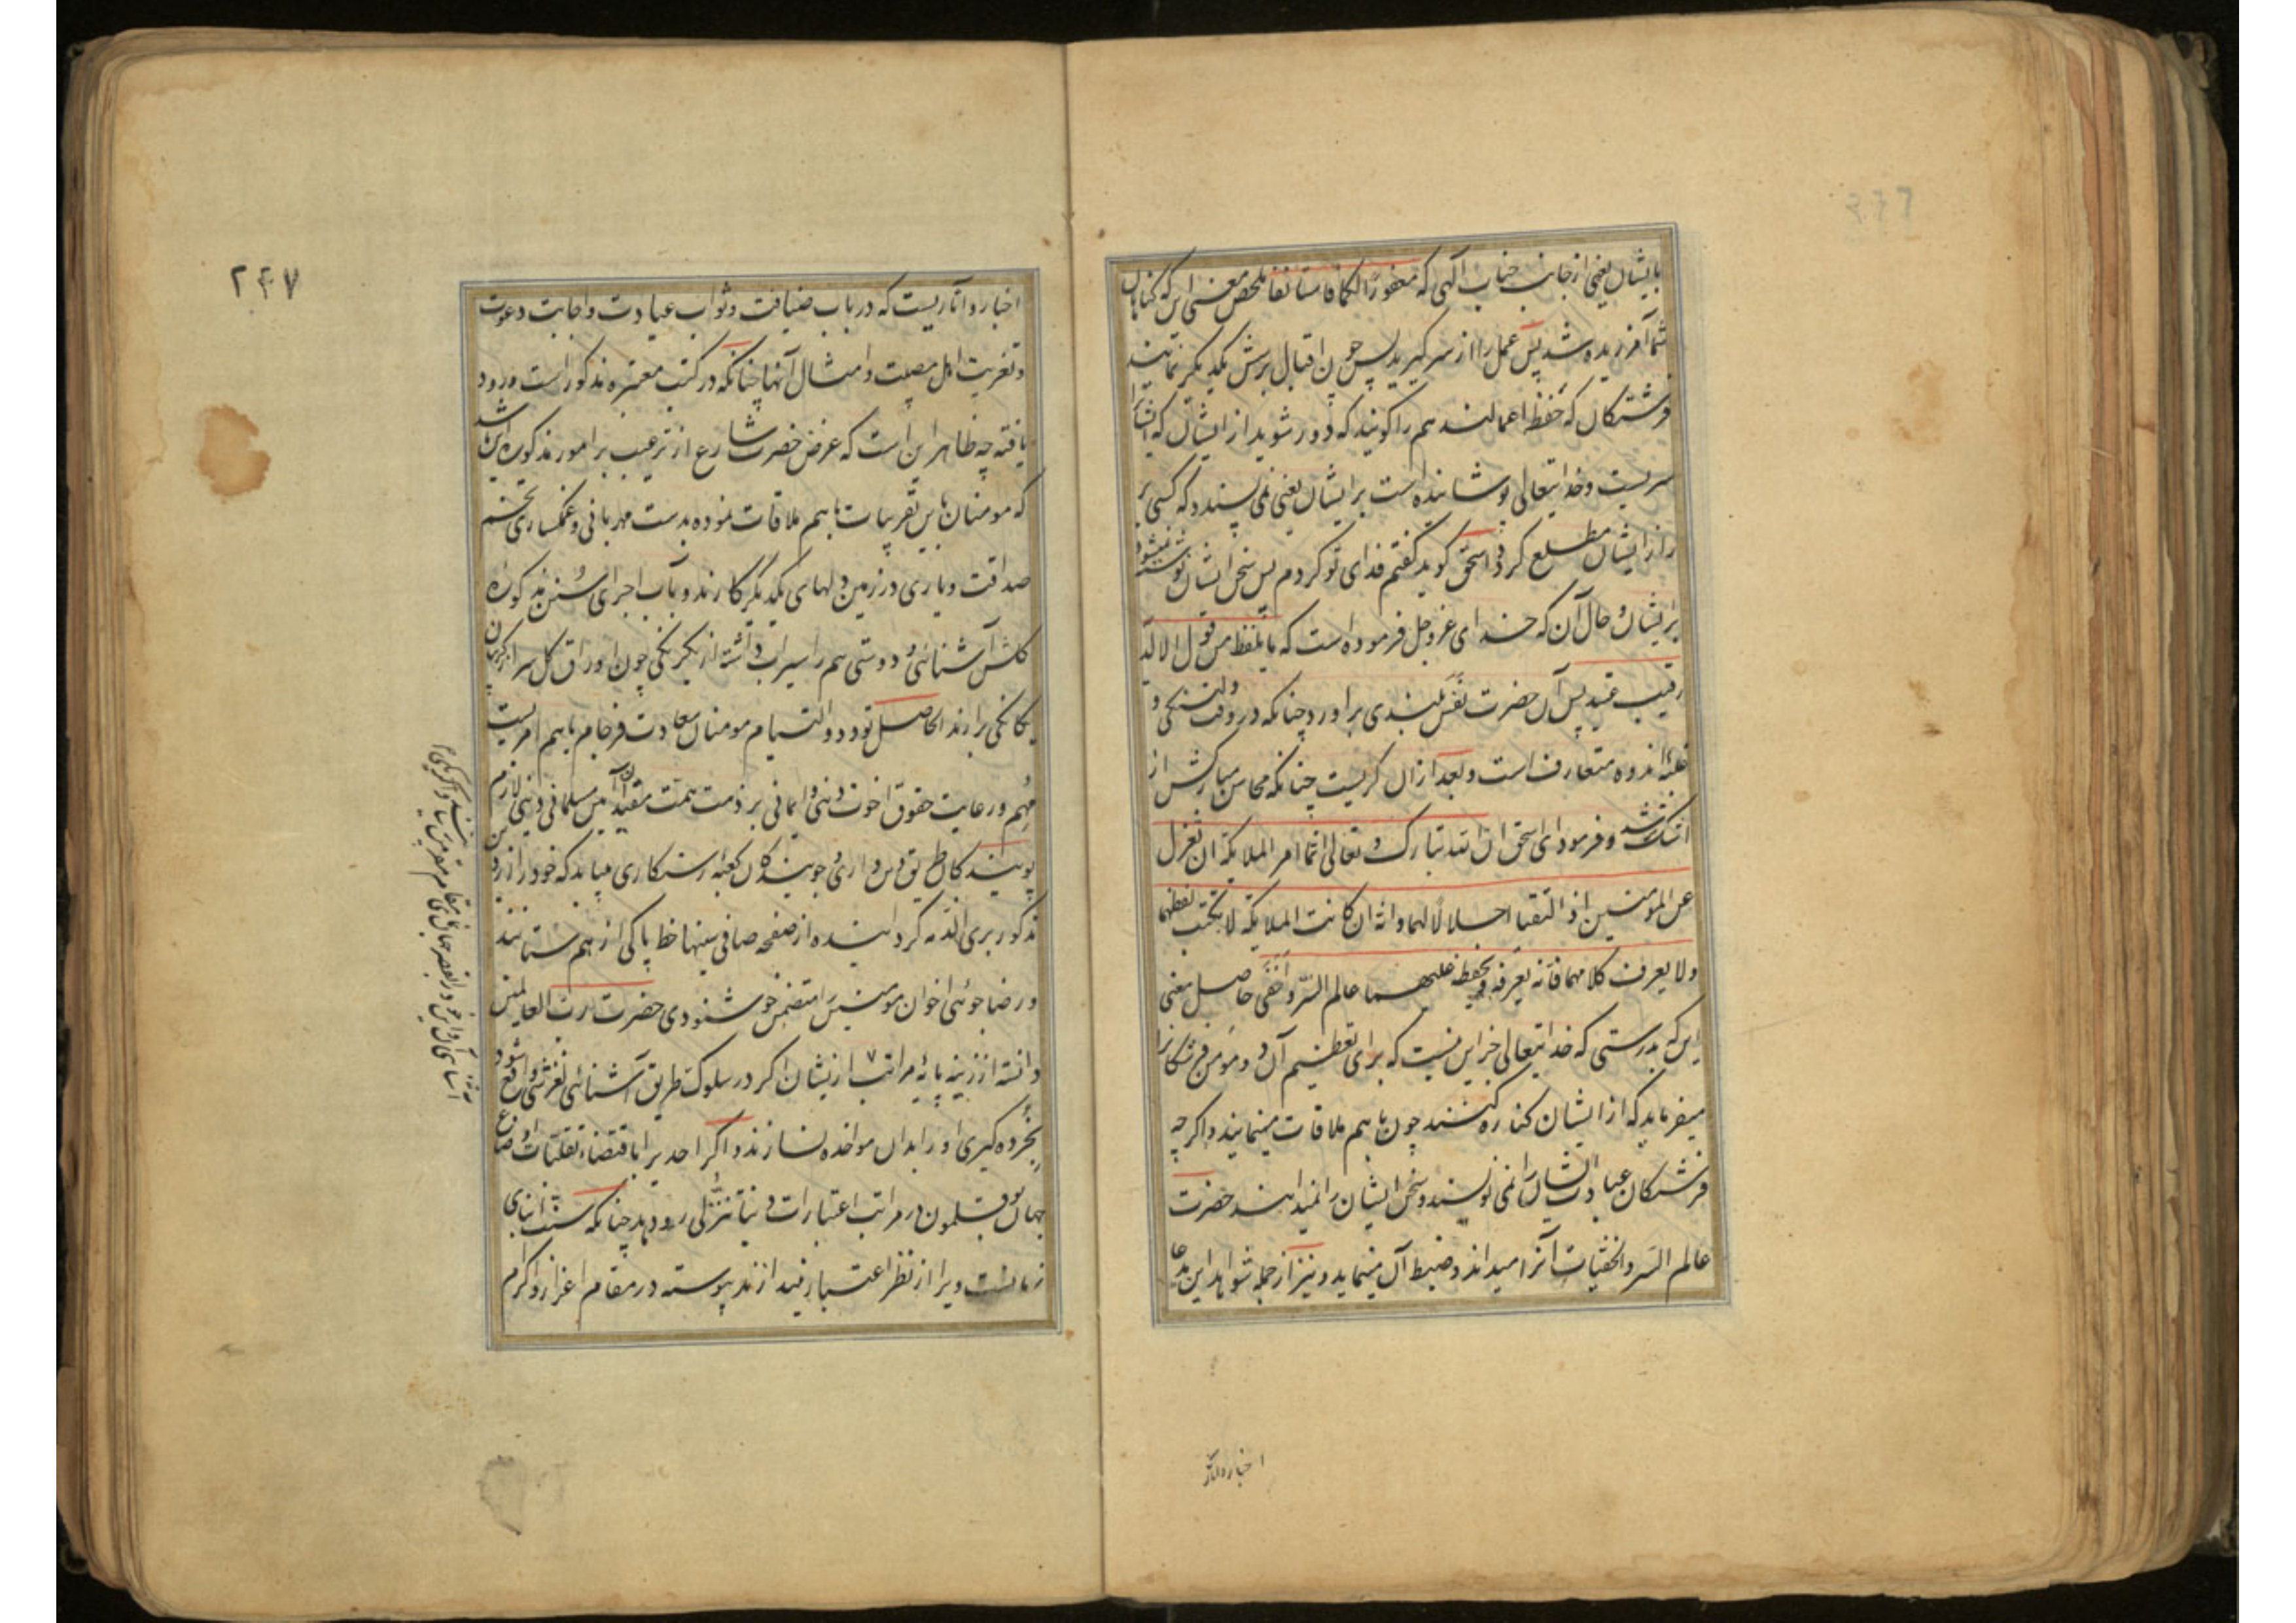 بایشان یعنی از جانب جناب الهی که مغفورا لکما فاستانفا ملخص معنی این که گناهان
شما آمرزیده شد پس عمل را از سر گیرید پس چون اقبال بر پرسش یکدیگر نمایند
فرشتگان که حفظ اعمالند هم را گویند که دور شوید از ایشان که ایشانرا
سریست و خدایتعالی پوشانیده است بر ایشان یعنی نمی پسندد که کسی بر
راز ایشان مطلع گردد اسحق گوید گفتم فدای تو گردم پس سخن ایشان نوشته نمیشود
بر ایشان و حال آن که خدای عز و جل فرموده است که ما یلفظ من قول الا لدیه
رقیب عتید پس آن حضرت نفس بلندی برآورد چنانکه در وقت دلتنگی و
غلبه اندوه متعارف است و بعد از ان گریست چنانکه محاسن مبارکش از
اشک تر شد و فرمود ای اسحق ان الله تبارک و تعالی انما امر الملایکة ان تعزل
عن المومنین اذا التقیا اجلالا لهما و انه ان کانت الملایکة لا تکتب لفظهما
ولا یعرف کلامهما فانه یعرفه و یحفظه علیهما عالم السر و اخفی حاصل معنی
این که بدرستی که خدایتعالی جز این نیست که برای تعظیم آن دو مومن فرشتگانرا
میفرماید که از ایشان کناره کنند چون باهم ملاقات مینمایند و اگر چه
فرشتگان عبادت ایشان را نمی نویسند و سخن ایشان را نمیدانند حضرت
عالم السر و الخفیات آنرا میداند و ضبط آن مینماید و نیز از جمله شواهد این مدعا
اخبار و آثار
۲۴۷
اخبار و آثاریست که در باب ضیافت و ثواب عیادت و اجابت دعوت
و تعزیت اهل مصیبت و امثال آنها چنانکه در کتب معتبره مذکور است ورود
یافته چه ظاهر این است که غرض حضرت شارع از ترغیب بر امور مذکوره این باشد
که مومنان باین تقریبات باهم ملاقات نموده بدست مهربانی و غمگساری تخم
صداقت و یاری در زمین دلهای یکدیگر کارند و بآب اجرای سنن مذکوره
گلشن آشنائی و دوستی هم را سیراب داشته از یکرنگی چون اوراق گل سر از گریبان
یگانگی برآرند الحاصل تودد و التیام مومنان سعادت فرجام باهم امریست
مهم و رعایت حقوق اخوت دینی و ایمانی بر ذمت همت مقیدان آیین مسلمانی و دینی لازم
پویندگان طریق دین داری و جویندگان کعبه رستگاری میباید که خود را از
مذکور بری الذمه گردانیده از صفحه صافی سینها خط پاکی از هم ستانند
و رضا جوئی اخوان مومنین را متضمن خوشنودی حضرت رب العالمین
دانسته از زینه پایه مراتب ازیشان اگر در سلوک طریق آشنائی لغزشی واقع شود
بخرده گیری او را بدان مواخذه نسازند و اگر احدیرا باقتضاء تقلبات اوضاع
جهان بوقلمون در مراتب اعتبارات دنیا تنزلی رو دهد چنانکه شیوه ابنای
زمانست ویرا از نظر اعتبار نیندازند پیوسته در مقام اعزاز و اکرام